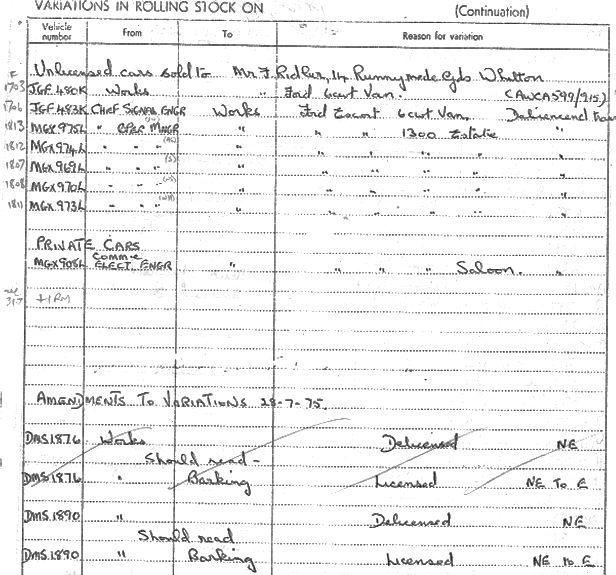 VARIATIONS IN ROLLING STOCK ON (Continuation)
Vehicle number From To Reason for variation
Unlicensed cars sold to Mr F. Ridler, 14 Runnymede Gds. Whitton
1703 JGF 480K Works Ford 6cwt Van. (AWCA599/215)
1706 JGF 483K Chief Signal Engr Works Ford Escort 6cwt Van. Delicenced
1813 MGX 975L " Oper Mngr " " " 1300 Estate "
1812 MGX 974L " " " " " " " " "
1807 MGX 969L " " " (S) " " " " " "
1808 MGX 970L " " " " " " " " "
1811 MGX 973L " " " " " " " " "
PRIVATE CARS
MGX 908L Comm & Elect. Engr " " " " Saloon. "
317 HRM
AMENDMENTS TO VARIATIONS 28-7-75.
DMS.1876 Works Delicensed NE
Should read -
DMS.1876 " Barking Licensed NE To E
DMS.1890 " Delicensed NE
Should read
DMS.1890 " Barking Licensed NE to E